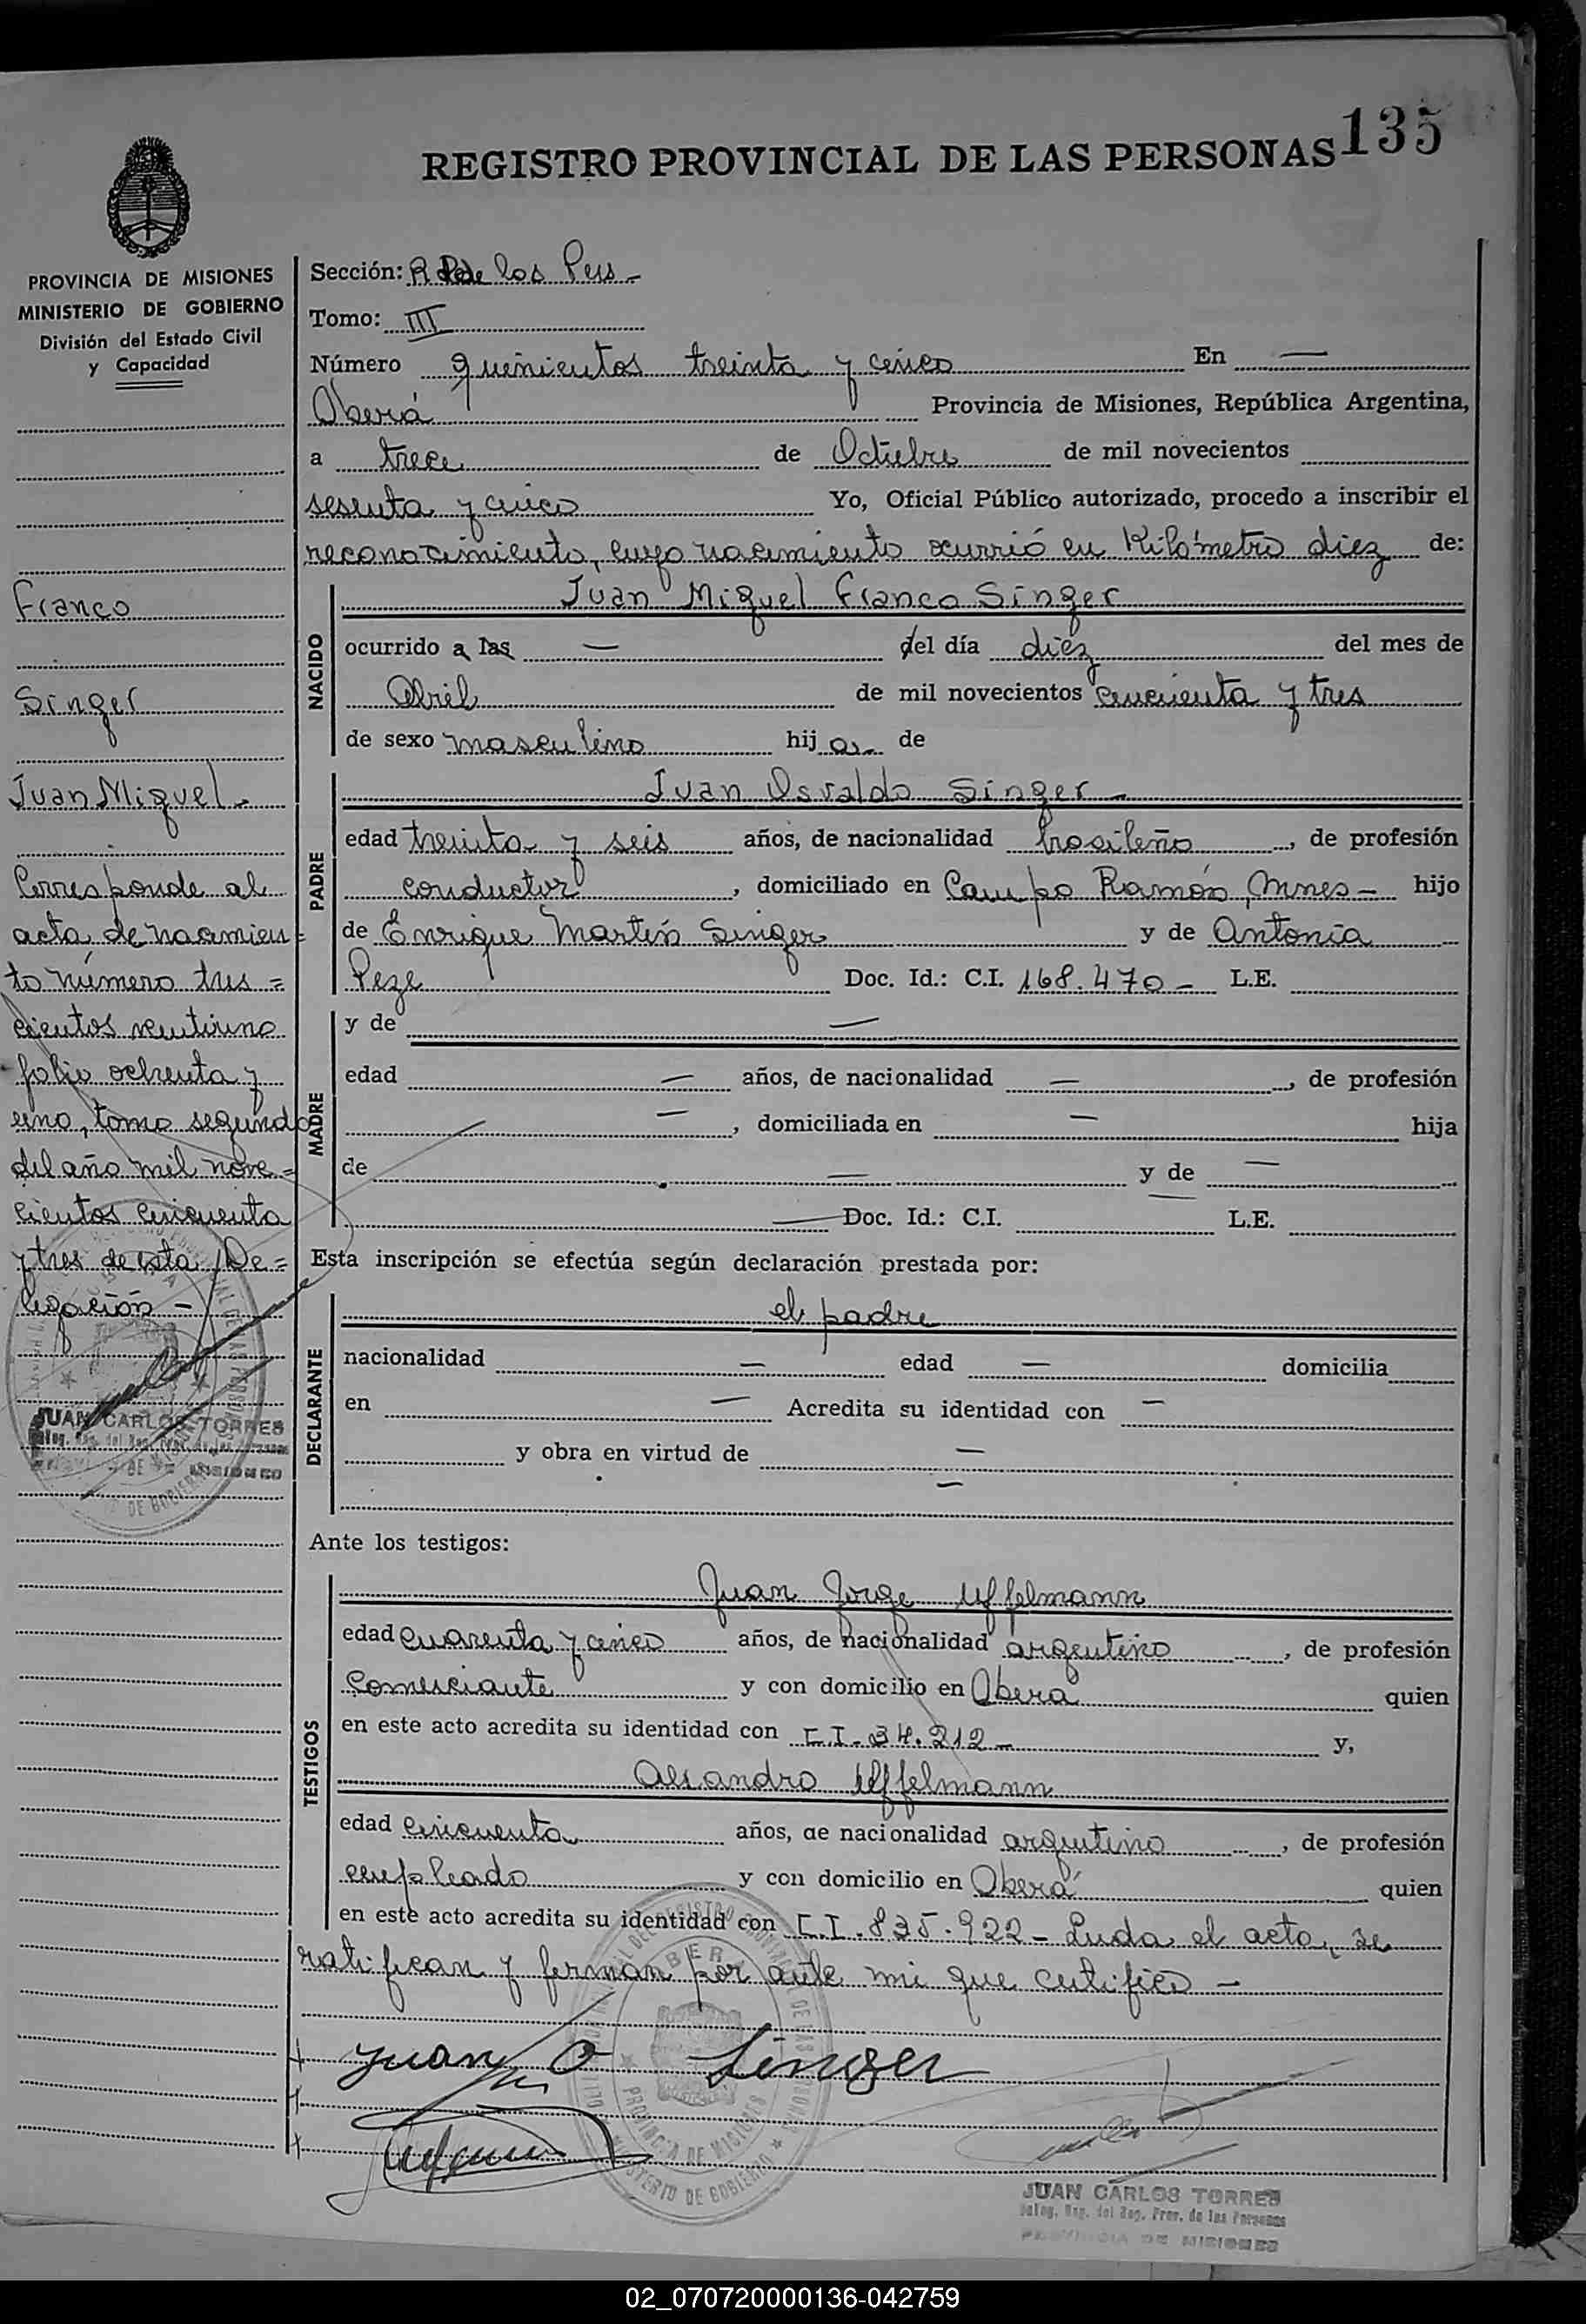 135
REGISTRO PROVINCIAL DE LAS PERSONAS
PROVINCIA DE MISIONES
MINISTERIO DE GOBIERNO
División del Estado Civil
y Capacidad
Franco
Singer
Juan Miguel
Corresponde al
acta de nacimien=
to número tres=
cientos veintiuno
folio ochenta y
uno, tomo segundo
del año mil nove=
cientos cincuenta
y tres de esta De=
legación -
JUAN CARLOS TORRES
Sección: R de los Pers -
Tomo: III
Número quinientos treinta y cinco En —
Oberá Provincia de Misiones, República Argentina,
a trece de Octubre de mil novecientos
sesenta y cinco Yo, Oficial Público autorizado, procedo a inscribir el
reconocimiento, cuyo nacimiento ocurrió en Kilómetro diez de:
NACIDO
Juan Miguel Franco Singer
ocurrido a las — del día diez del mes de
Abril de mil novecientos cincuenta y tres
de sexo masculino hijo de
PADRE
Juan Osvaldo Singer -
edad treinta y seis años, de nacionalidad brasileño, de profesión
conductor, domiciliado en Campo Ramón, Mnes - hijo
de Enrique Martín Singer y de Antonia
Peze Doc. Id.: C.I. 168.470 - L.E.
MADRE
y de —
edad — años, de nacionalidad —, de profesión
—, domiciliada en — hija
de — y de —
— Doc. Id.: C.I. L.E.
Esta inscripción se efectúa según declaración prestada por:
DECLARANTE
el padre
nacionalidad — edad — domicilia
en — Acredita su identidad con —
y obra en virtud de —
—
Ante los testigos:
TESTIGOS
Juan Jorge Uffelmann
edad cuarenta y cinco años, de nacionalidad argentino, de profesión
Comerciante y con domicilio en Oberá quien
en este acto acredita su identidad con C.I. 34.212 - y,
Alsandro Uffelmann
edad cincuenta años, de nacionalidad argentino, de profesión
empleado y con domicilio en Oberá quien
en este acto acredita su identidad con C.I. 835.922 - Leída el acta, se
ratifican y firman por ante mi que certifico -
Juan O Singer
PROVINCIA DE MISIONES
MINISTERIO DE GOBIERNO
JUAN CARLOS TORRES
Deleg. Reg. del Reg. Prov. de las Personas
PROVINCIA DE MISIONES
02_070720000136-042759